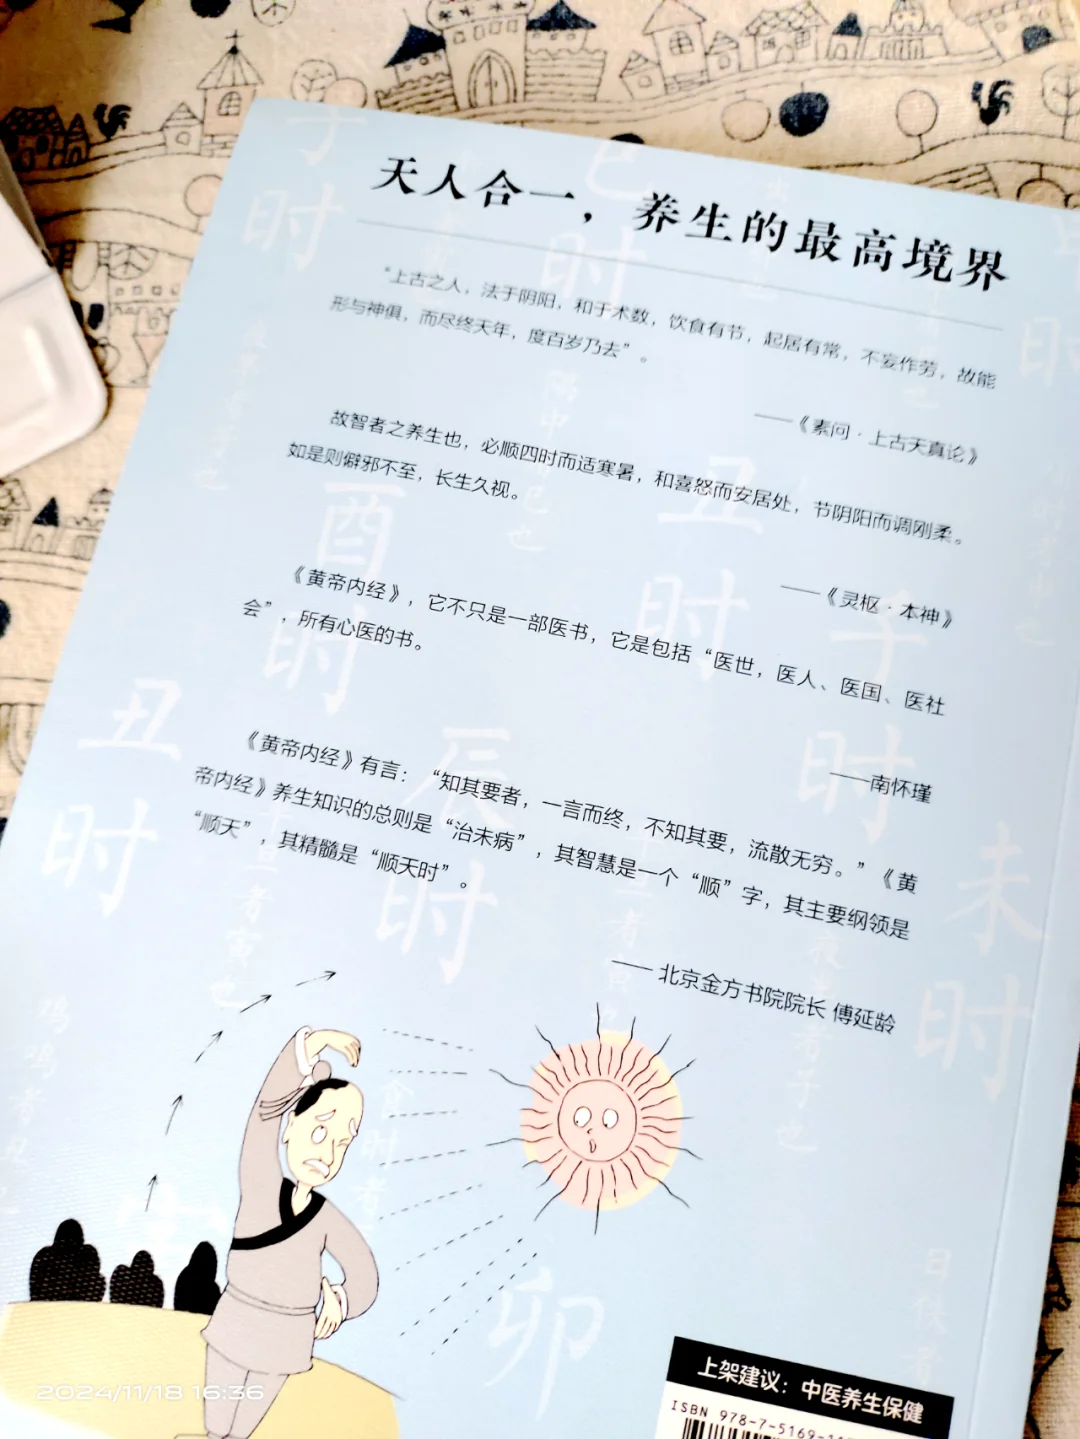 天人合一，养生的最高境界
“上古之人，法于阴阳，和于术数，饮食有节，起居有常，不妄作劳，故能
形与神俱，而尽终天年，度百岁乃去”。
——《素问·上古天真论》
故智者之养生也，必顺四时而适寒暑，和喜怒而安居处，节阴阳而调刚柔。
如是则僻邪不至，长生久视。
——《灵枢·本神》
《黄帝内经》，它不只是一部医书，它是包括“医世，医人、医国、医社
会”，所有心医的书。
——南怀瑾
《黄帝内经》有言：“知其要者，一言而终，不知其要，流散无穷。”《黄
帝内经》养生知识的总则是“治未病”，其智慧是一个“顺”字，其主要纲领是
“顺天”，其精髓是“顺天时”。
—— 北京金方书院院长 傅延龄
子时
巳时
酉时
丑时
子时
丑时
辰时
未时
卯
上架建议：中医养生保健
ISBN 978-7-5169-
2024/11/18 16:36